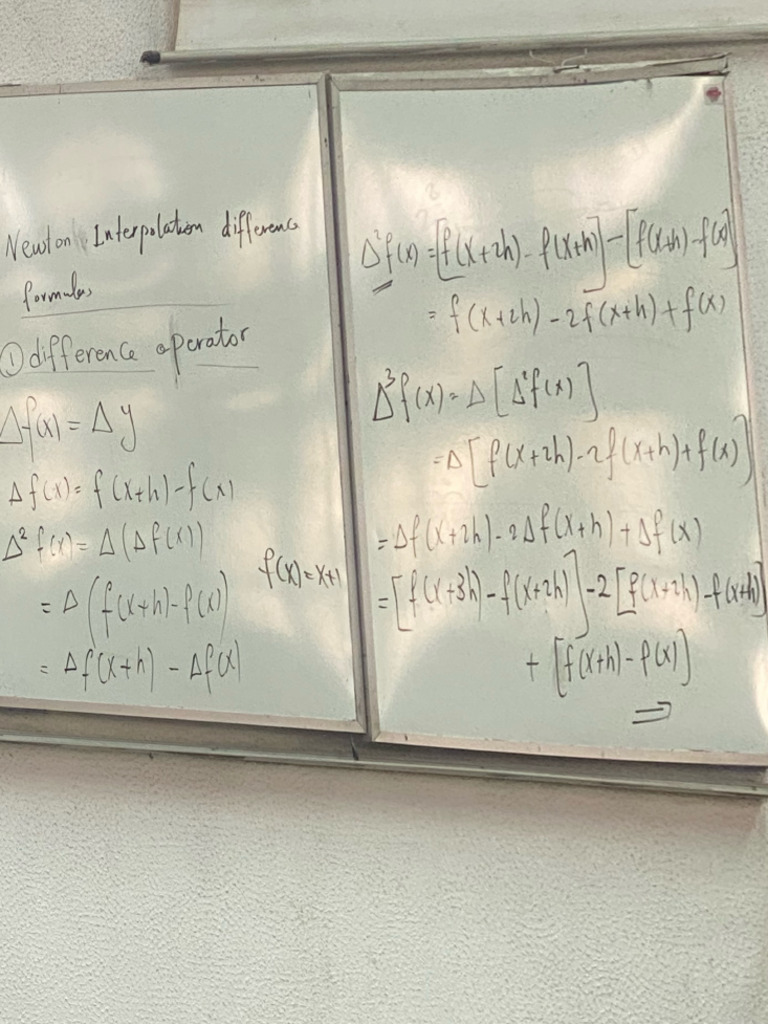 Newton Interpolation difference
formulas
① difference operator
Δf(x) = Δy
Δf(x) = f(x+h) - f(x)
Δ² f(x) = Δ(Δf(x))
= Δ(f(x+h) - f(x))
= Δf(x+h) - Δf(x)
f(x) = x+1
Δ²f(x) = [f(x+2h) - f(x+h)] - [f(x+h) - f(x)]
= f(x+2h) - 2f(x+h) + f(x)
Δ³f(x) = Δ[Δ²f(x)]
= Δ[f(x+2h) - 2f(x+h) + f(x)]
= Δf(x+2h) - 2Δf(x+h) + Δf(x)
= [f(x+3h) - f(x+2h)] - 2[f(x+2h) - f(x+h)]
+ [f(x+h) - f(x)]